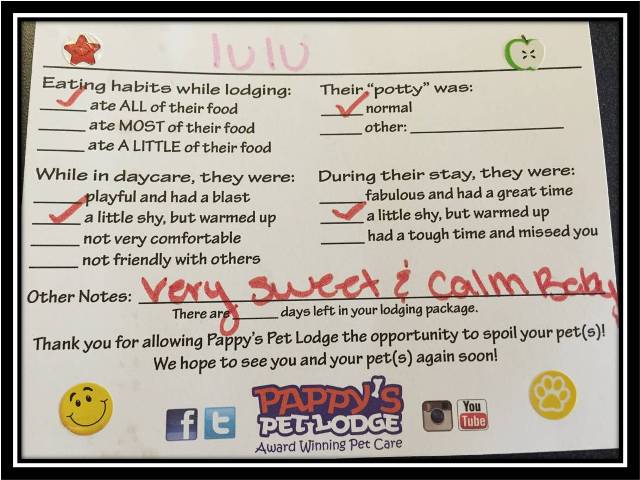 lulu
Eating habits while lodging:
✓ ate ALL of their food
____ ate MOST of their food
____ ate A LITTLE of their food
Their "potty" was:
✓ normal
____ other: ____________________
While in daycare, they were:
____ playful and had a blast
✓ a little shy, but warmed up
____ not very comfortable
____ not friendly with others
During their stay, they were:
____ fabulous and had a great time
✓ a little shy, but warmed up
____ had a tough time and missed you
Other Notes: Very sweet & Calm Baby
There are ______ days left in your lodging package.
Thank you for allowing Pappy's Pet Lodge the opportunity to spoil your pet(s)!
We hope to see you and your pet(s) again soon!
f t
PAPPY'S
PET LODGE
Award Winning Pet Care
You
Tube